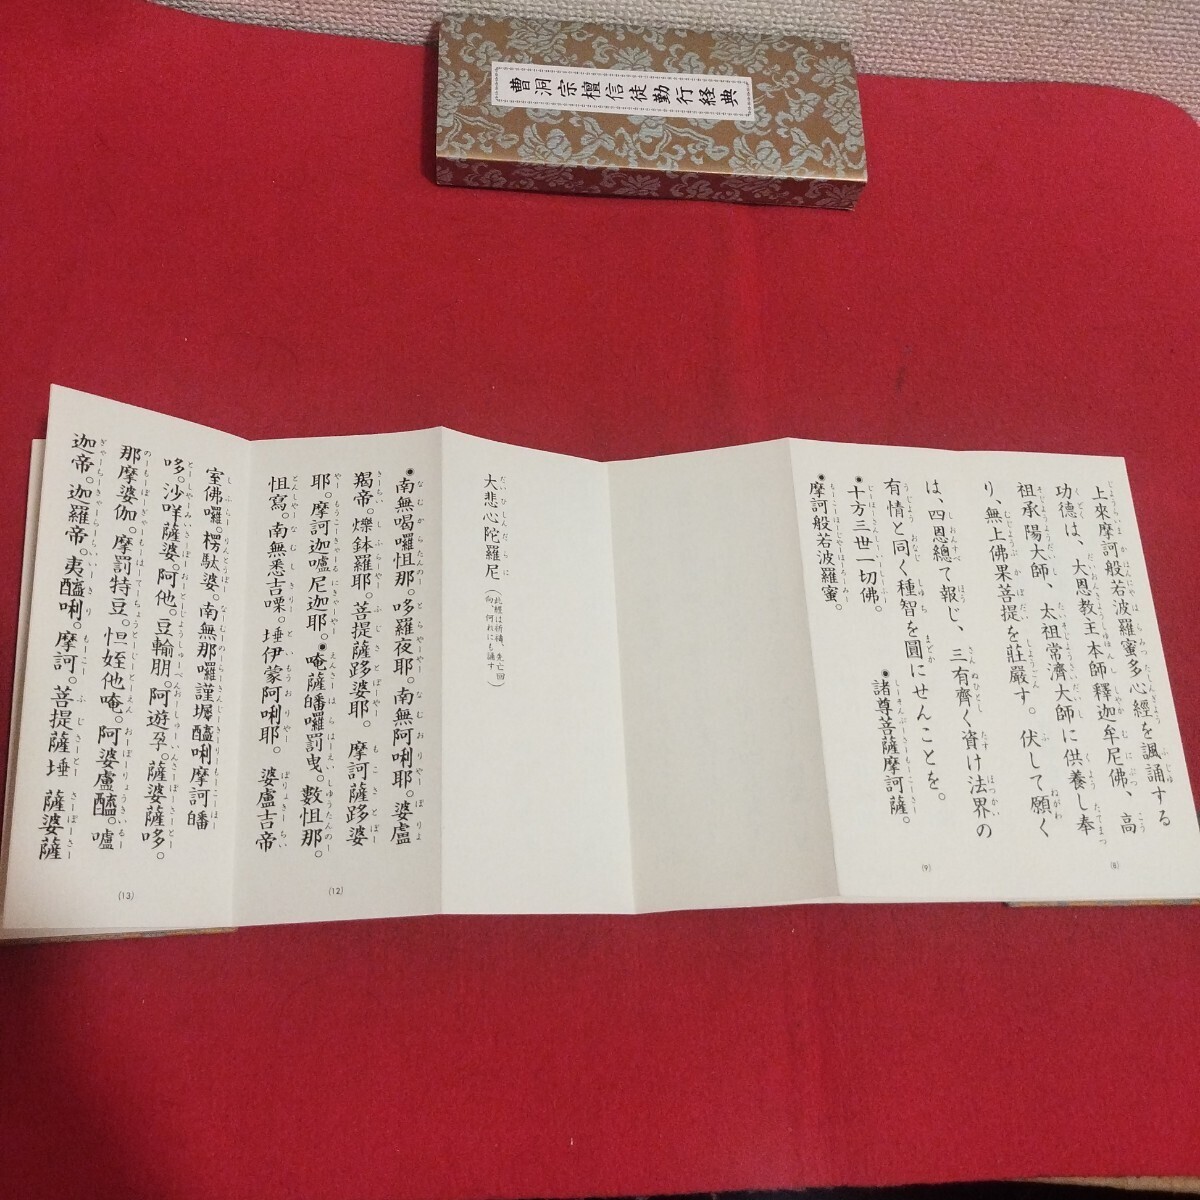 曹洞宗檀信徒勤行経典
上來摩訶般若波羅蜜多心經を諷誦する
功徳は、大恩教主本師釋迦牟尼佛、高
祖承陽大師、太祖常濟大師に供養し奉
り、無上佛果菩提を莊嚴す。伏して願く
(8)
は、四恩總て報じ、三有齊く資け法界の
有情と同く種智を圓にせんことを。
十方三世一切佛。諸尊菩薩摩訶薩。
摩訶般若波羅蜜。
(9)
大悲心陀羅尼(此經は祈祷、先亡回向、何れにも誦す)
南無喝囉怛那。哆羅夜耶。南無阿唎耶。婆盧
羯帝。爍鉢羅耶。菩提薩跢婆耶。摩訶薩跢婆
耶。摩訶迦嚧尼迦耶。唵薩皤囉罰曳。數怛那
怛寫。南無悉吉㗚。埵伊蒙阿唎耶。婆盧吉帝
(12)
室佛囉。楞馱婆。南無那囉謹墀醯唎摩訶皤
哆。沙咩薩婆。阿他。豆輸朋。阿遊孕。薩婆薩哆。
那摩婆伽。摩罰特豆。怛姪他唵。阿婆盧醯。嚧
迦帝。迦羅帝。夷醯唎。摩訶。菩提薩埵 薩婆薩
(13)